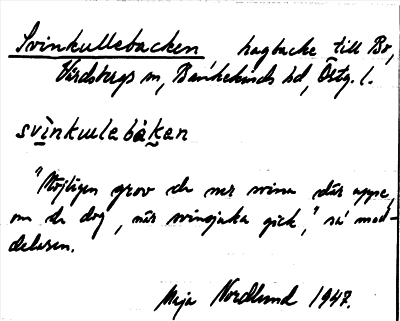 Svinkullebacken, hagbacke till Bo,
Vårdsbergs sn, Bankekinds hd, Östg. l.
svinkullebaken
"Möjligen grov de ner svina där uppe,
om de dog, när svinsjuka gick," sa' med-
delaren.
Maja Nordlund 1947.